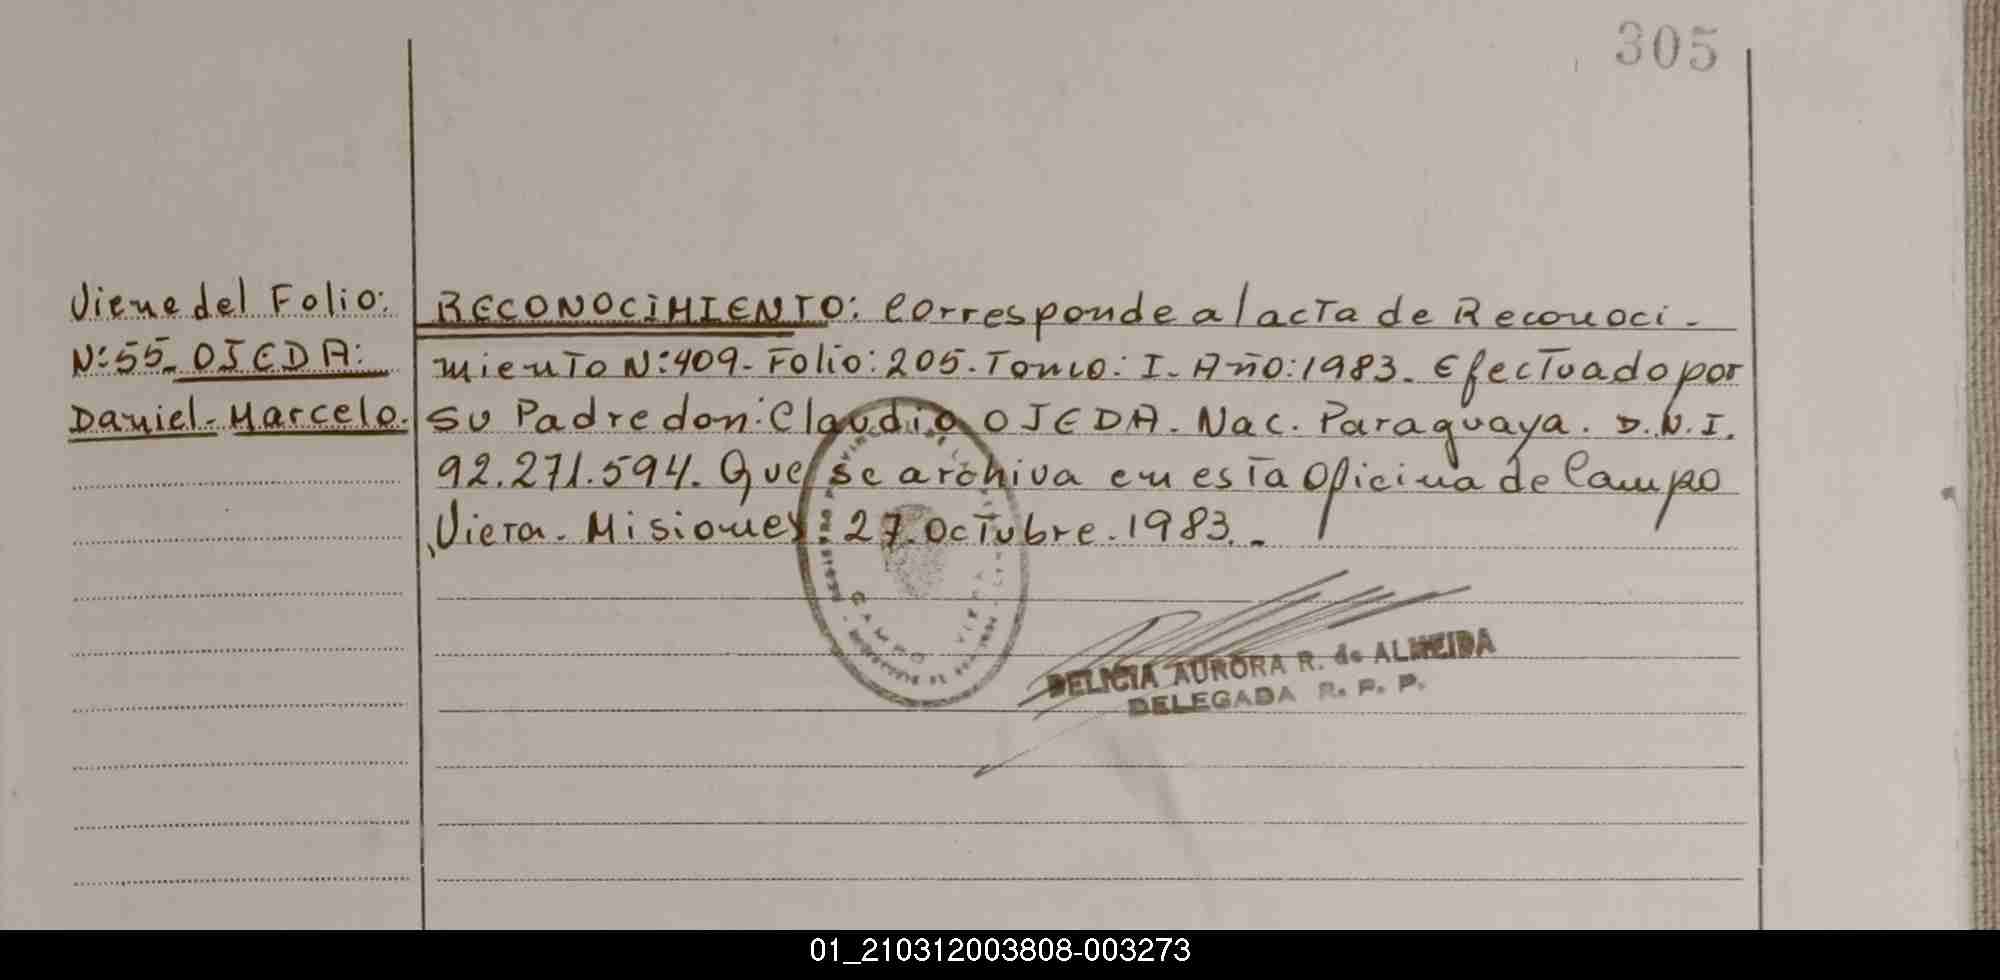 305
Viene del Folio:
N:55_ OJEDA:
Daniel-Marcelo.
RECONOCIMIENTO: Corresponde al acta de Reconoci-
miento N:409- Folio: 205. Tomo: I. Año: 1983. Efectuado por
su Padre don: Claudio OJEDA. Nac. Paraguaya. D.N.I.
92.271.594. Que se archiva en esta oficina de Campo
Viera. Misiones 27. Octubre. 1983.-
CAMPO VIERA
DELICIA AURORA R. de ALMEIDA
DELEGADA R. P. P.
01_210312003808-003273